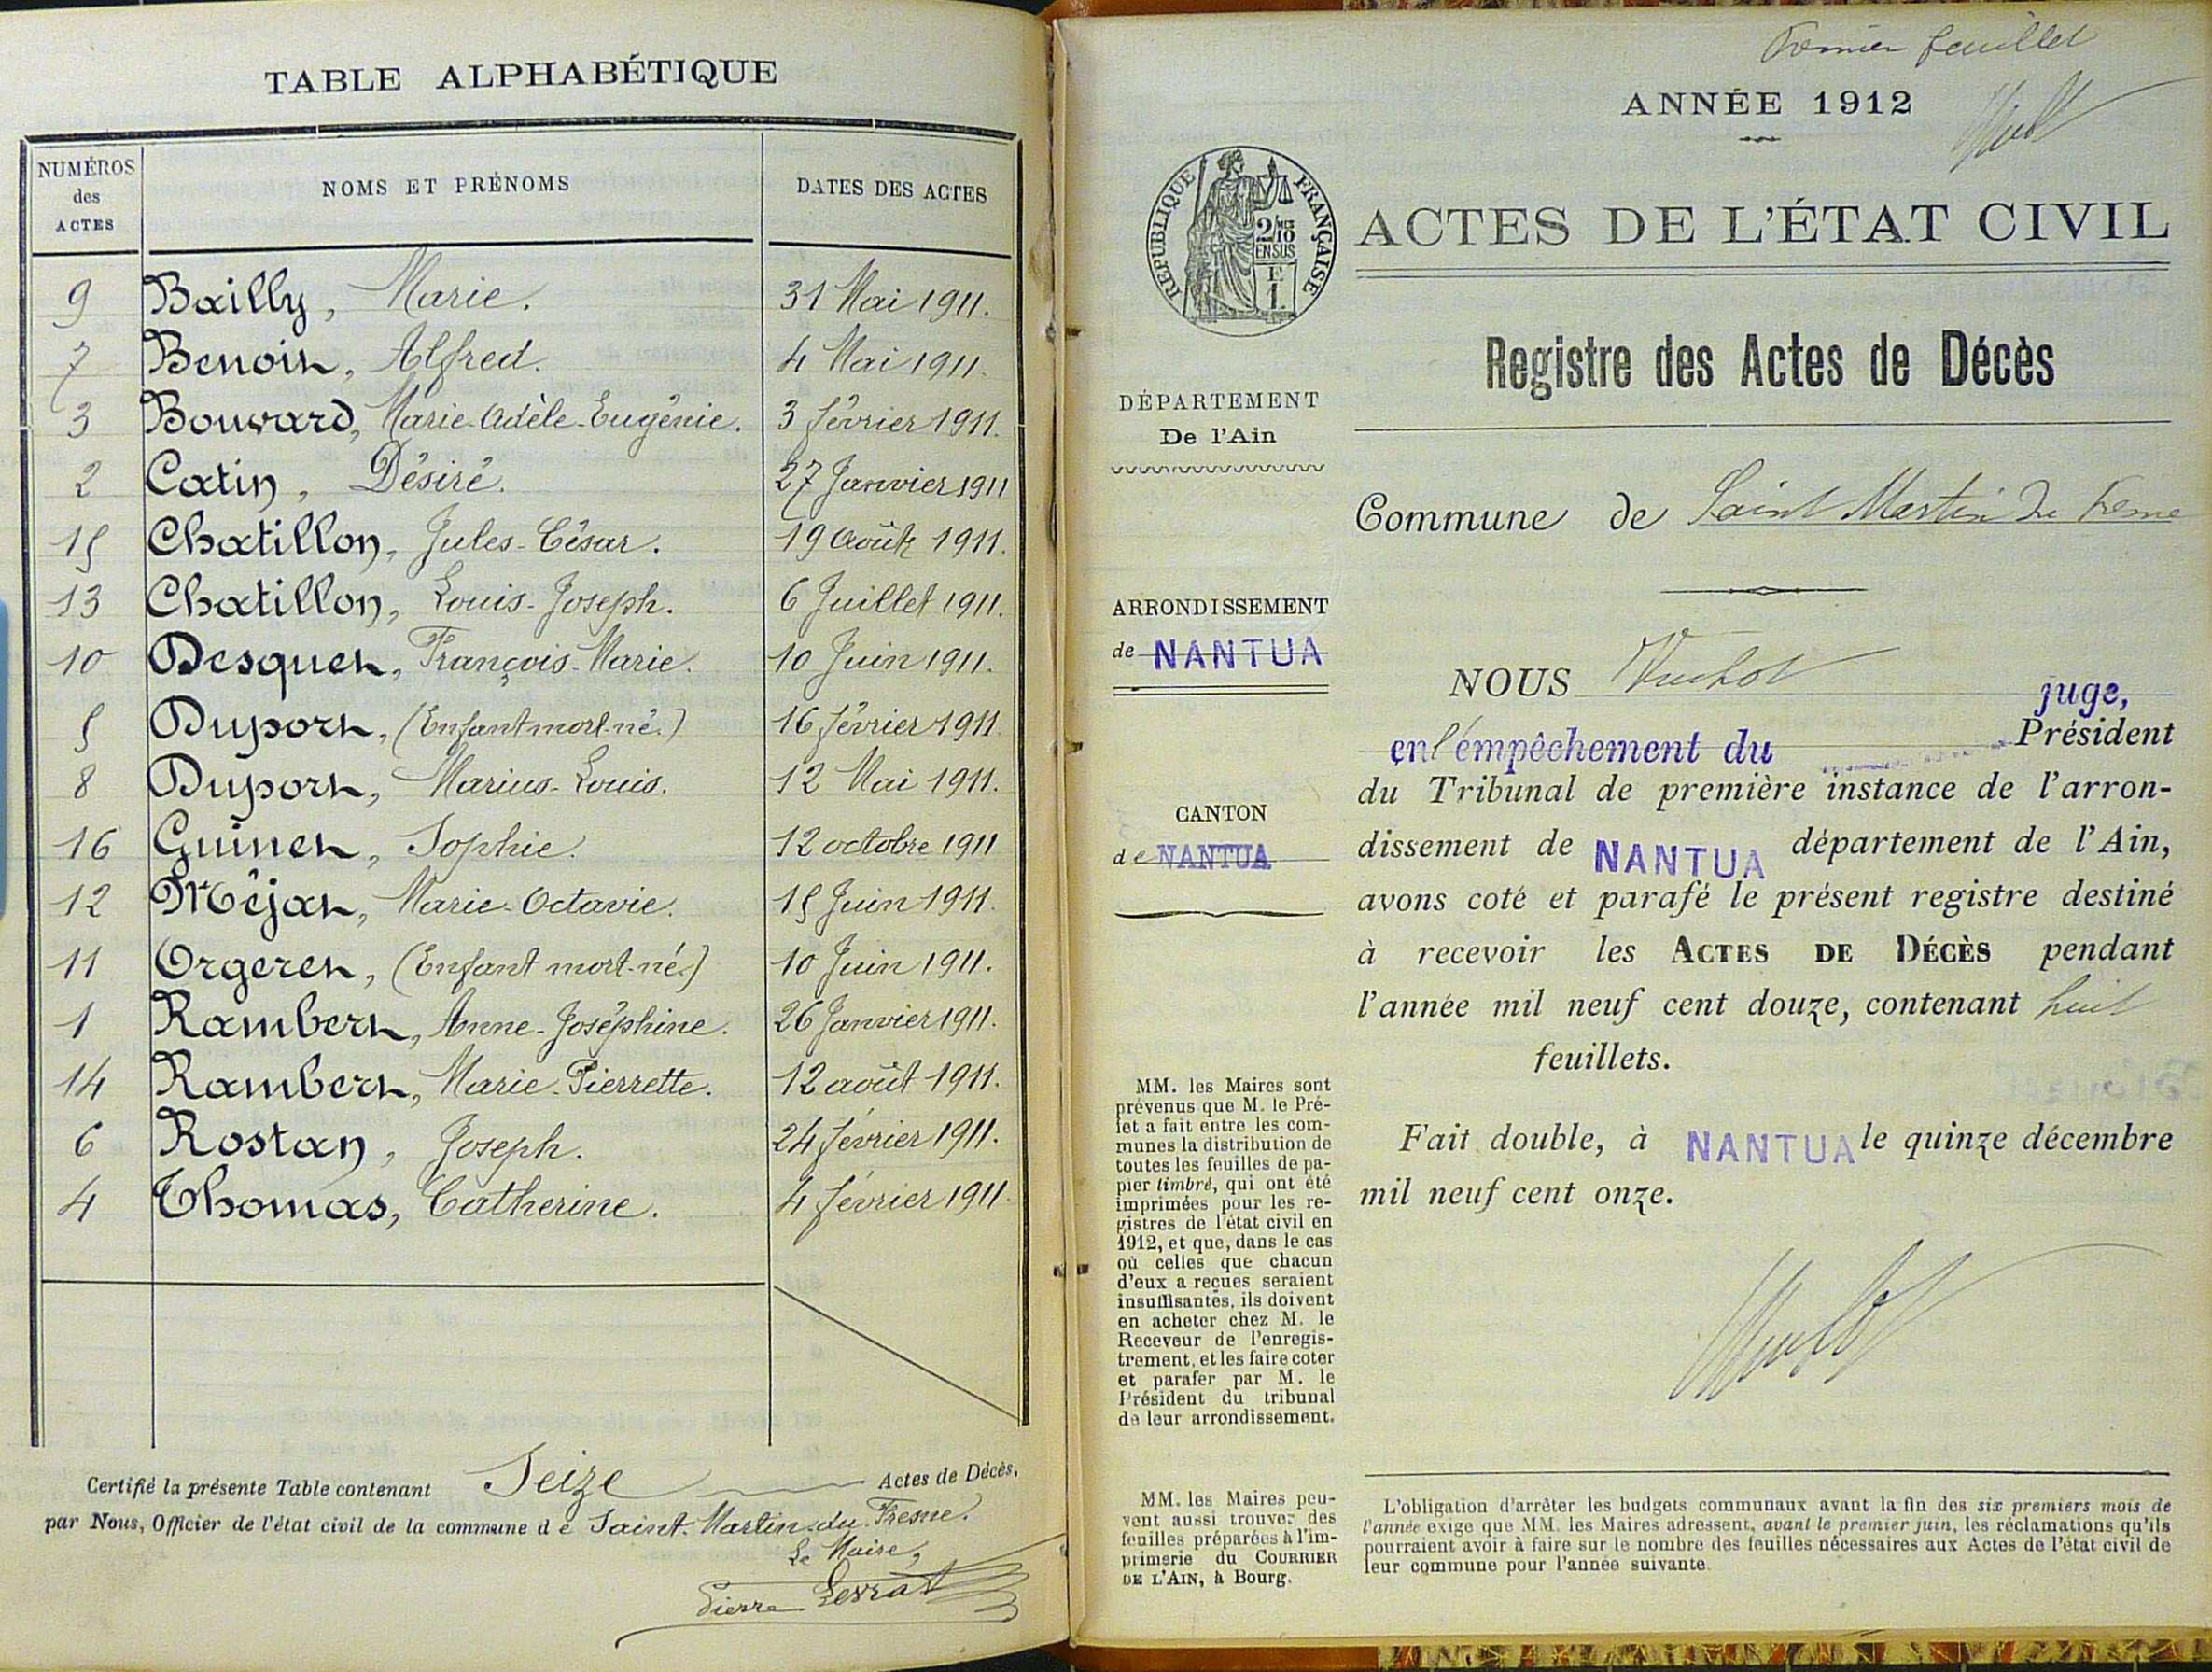 TABLE ALPHABÉTIQUE
NUMÉROS des ACTES
NOMS ET PRÉNOMS
DATES DES ACTES
9 Bailly, Marie. 31 Mai 1911.
7 Benoit, Alfred. 4 Mai 1911.
3 Bouvard, Marie-Adèle-Eugénie. 3 février 1911.
2 Catin, Désiré. 27 Janvier 1911
15 Chatillon, Jules-César. 19 Août 1911.
13 Chatillon, Louis-Joseph. 6 Juillet 1911.
10 Desquet, François-Marie. 10 Juin 1911.
5 Duport, (Enfant mort-né.) 16 février 1911.
8 Duport, Marius-Louis. 12 Mai 1911.
16 Guinet, Sophie. 12 octobre 1911
12 Méjat, Marie-Octavie. 15 Juin 1911.
11 Orgeret, (Enfant mort-né.) 10 Juin 1911.
1 Rambert, Anne-Joséphine. 26 Janvier 1911.
14 Rambert, Marie-Pierrette. 12 août 1911.
6 Rostan, Joseph. 24 février 1911.
4 Thomas, Catherine. 4 février 1911.
Certifié la présente Table contenant Seize Actes de Décès,
par Nous, Officier de l'état civil de la commune de Saint-Martin-du-Fresne.
Le Maire,
Pierre
Premier feuillet
ANNÉE 1912
RÉPUBLIQUE FRANÇAISE
2/10 EN SUS
E
1
ACTES DE L'ÉTAT CIVIL
Registre des Actes de Décès
DÉPARTEMENT
De l'Ain
Commune de Saint Martin du Fresne
ARRONDISSEMENT
de NANTUA
CANTON
de NANTUA
NOUS
juge,
en l'empêchement du Président
du Tribunal de première instance de l'arron-
dissement de NANTUA département de l'Ain,
avons coté et parafé le présent registre destiné
à recevoir les ACTES DE DÉCÈS pendant
l'année mil neuf cent douze, contenant huit
feuillets.
Fait double, à NANTUA le quinze décembre
mil neuf cent onze.
MM. les Maires sont
prévenus que M. le Pré-
fet a fait entre les com-
munes la distribution de
toutes les feuilles de pa-
pier timbré, qui ont été
imprimées pour les re-
gistres de l'état civil en
1912, et que, dans le cas
où celles que chacun
d'eux a reçues seraient
insuffisantes, ils doivent
en acheter chez M. le
Receveur de l'enregis-
trement, et les faire coter
et parafer par M. le
Président du tribunal
de leur arrondissement.
MM. les Maires peu-
vent aussi trouver des
feuilles préparées à l'im-
primerie du COURRIER
DE L'AIN, à Bourg.
L'obligation d'arrêter les budgets communaux avant la fin des six premiers mois de
l'année exige que MM. les Maires adressent, avant le premier juin, les réclamations qu'ils
pourraient avoir à faire sur le nombre des feuilles nécessaires aux Actes de l'état civil de
leur commune pour l'année suivante.